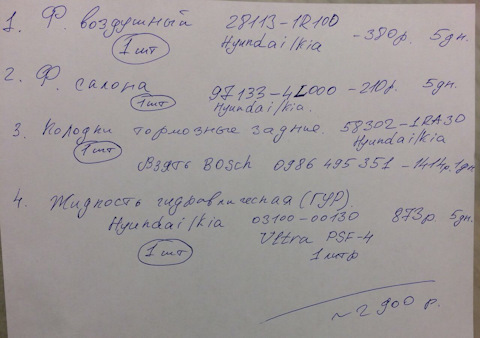 1. Ф. воздушный 28113-1R100 -380р. 5дн.
1шт Hyundai/Kia
2. Ф. салона 97133-4L000 -210р. 5дн.
1шт Hyundai/Kia.
3. Колодки тормозные задние. 58302-1RA30
1шт Hyundai/Kia
Взять BOSCH 0986 495 351 -1414р. 1дн
4. Жидкость гидравлическая (ГУР)
Hyundai/Kia 03100-00130 873р 5дн.
Ultra PSF-4
1шт 1 литр
~2900 р.